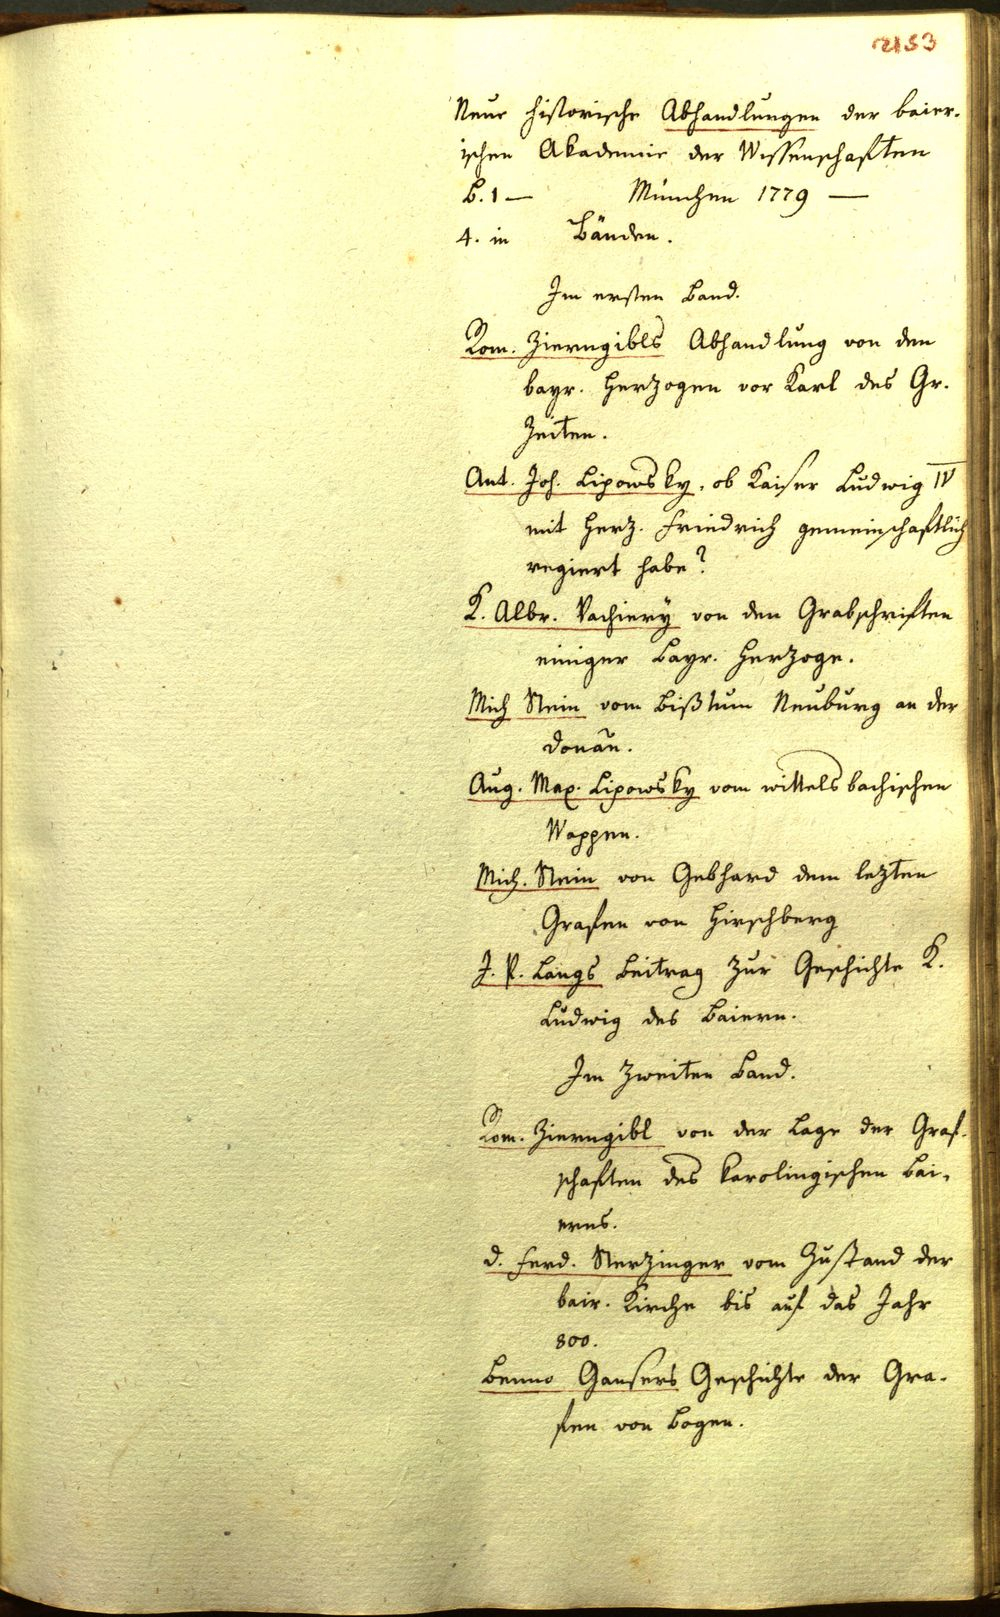 2153
Neue historische Abhandlungen der baier-
ischen Akademie der Wissenschaften
B. 1 — München 1779 —
4. in Bänden.
Im ersten Band.
Rom. Zierngibls Abhandlung von den
bayr. Herzogen vor Karl des Gr.
Zeiten.
Ant. Joh. Lipowsky, ob Kaiser Ludwig IV
mit Herz. Friedrich gemeinschaftlich
regiert habe?
K. Albr. Vachiery von den Grabschriften
einiger Bayr. Herzoge.
Mich Stein vom Bißtum Neuburg an der
Donau.
Aug. Max. Lipowsky vom wittelsbachischen
Wappen.
Mich. Stein von Gebhard dem lezten
Grafen von Hirschberg
J. P. Langs Beitrag zur Geschichte K.
Ludwig des Baiern.
Im zweiten Band.
Rom. Zierngibl von der Lage der Graf-
schaften des karolingischen Bai-
erns.
d. Ferd. Sterzinger vom Zustand der
bair. Kirche bis auf das Jahr
800.
Benno Gansers Geschichte der Gra-
fen von Bogen.